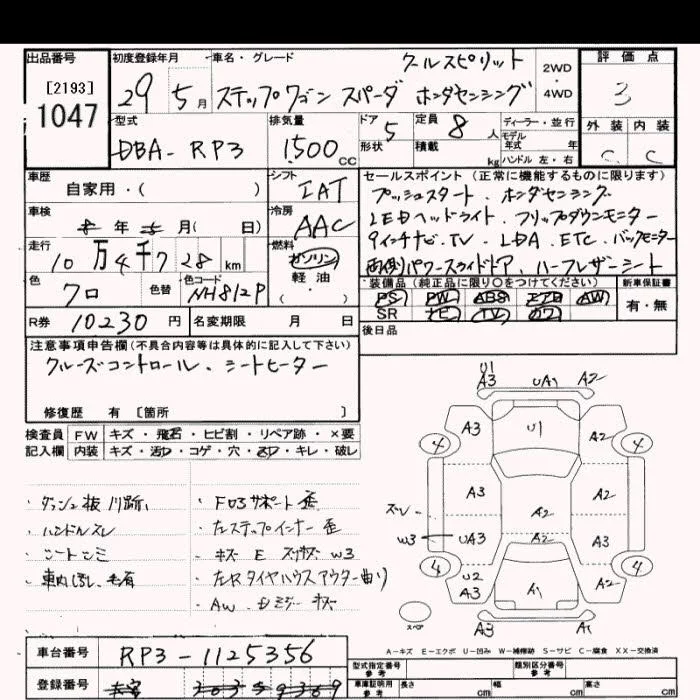 出品番号 初度登録年月 車名・グレード クールスピリット 2WD・4WD 評価点
[2193]
1047 29 5月 ステップワゴン スパーダ ホンダセンシング 3
型式 排気量 ドア 5 定員 8人 ディーラー・並行 外装 内装
DBA-RP3 1500cc 形状 積載 kg モデル年式 年 ハンドル 左・右 C C
車歴 シフト セールスポイント (正常に機能するものに限ります)
自家用・( ) IAT プッシュスタート、ホンダセンシング
車検 年 月(日) 冷房 LEDヘッドライト、フリップダウンモニター
走行 AAC 9インチナビ.TV、LDA、ETC、バックモニター
10万4千7 28km 燃料 ガソリン 両側パワースライドドア、ハーフレザーシート
色 色替 色コード 軽油 装備品(純正品に限り○をつけてください) 新車保証書
クロ NH812P (・) PS PW ABS エアB AW 有・無
R券 10230円 名変期限 月 日 SR ナビ TV カワ
後日品
注意事項申告欄(不具合内容等は具体的に記入して下さい)
クルーズコントロール、シートヒーター
修復歴 有 [箇所 ]
検査員 FW キズ・飛石・ヒビ割・リペア跡・×要
記入欄 内装 キズ・汚れ・コゲ・穴・・キレ・破レ
・ダッシュ板 
・ハンドルスレ
・シートシミ
・車内 毛有
・F03サポート歪
・左ステップインナー歪
・キズ E W3
・左Rタイヤハウスアウター曲り
・AW. キズ
U1
A3 UA1 A2
4 A3 U1 A2 4
A3 A2 A2
スレ
W3 UA3 A2 A3
4 U2 A3 A1 A2 4
スペア A3 A1
A-キズ E-エクボ U-凹み W-補修跡 S-サビ C-腐食 XX-交換済
車台番号 RP3-1125356
登録番号
型式指定番号 参考 類別区分番号 参考
車庫証明用 参考 長さ cm 幅 cm 高さ cm